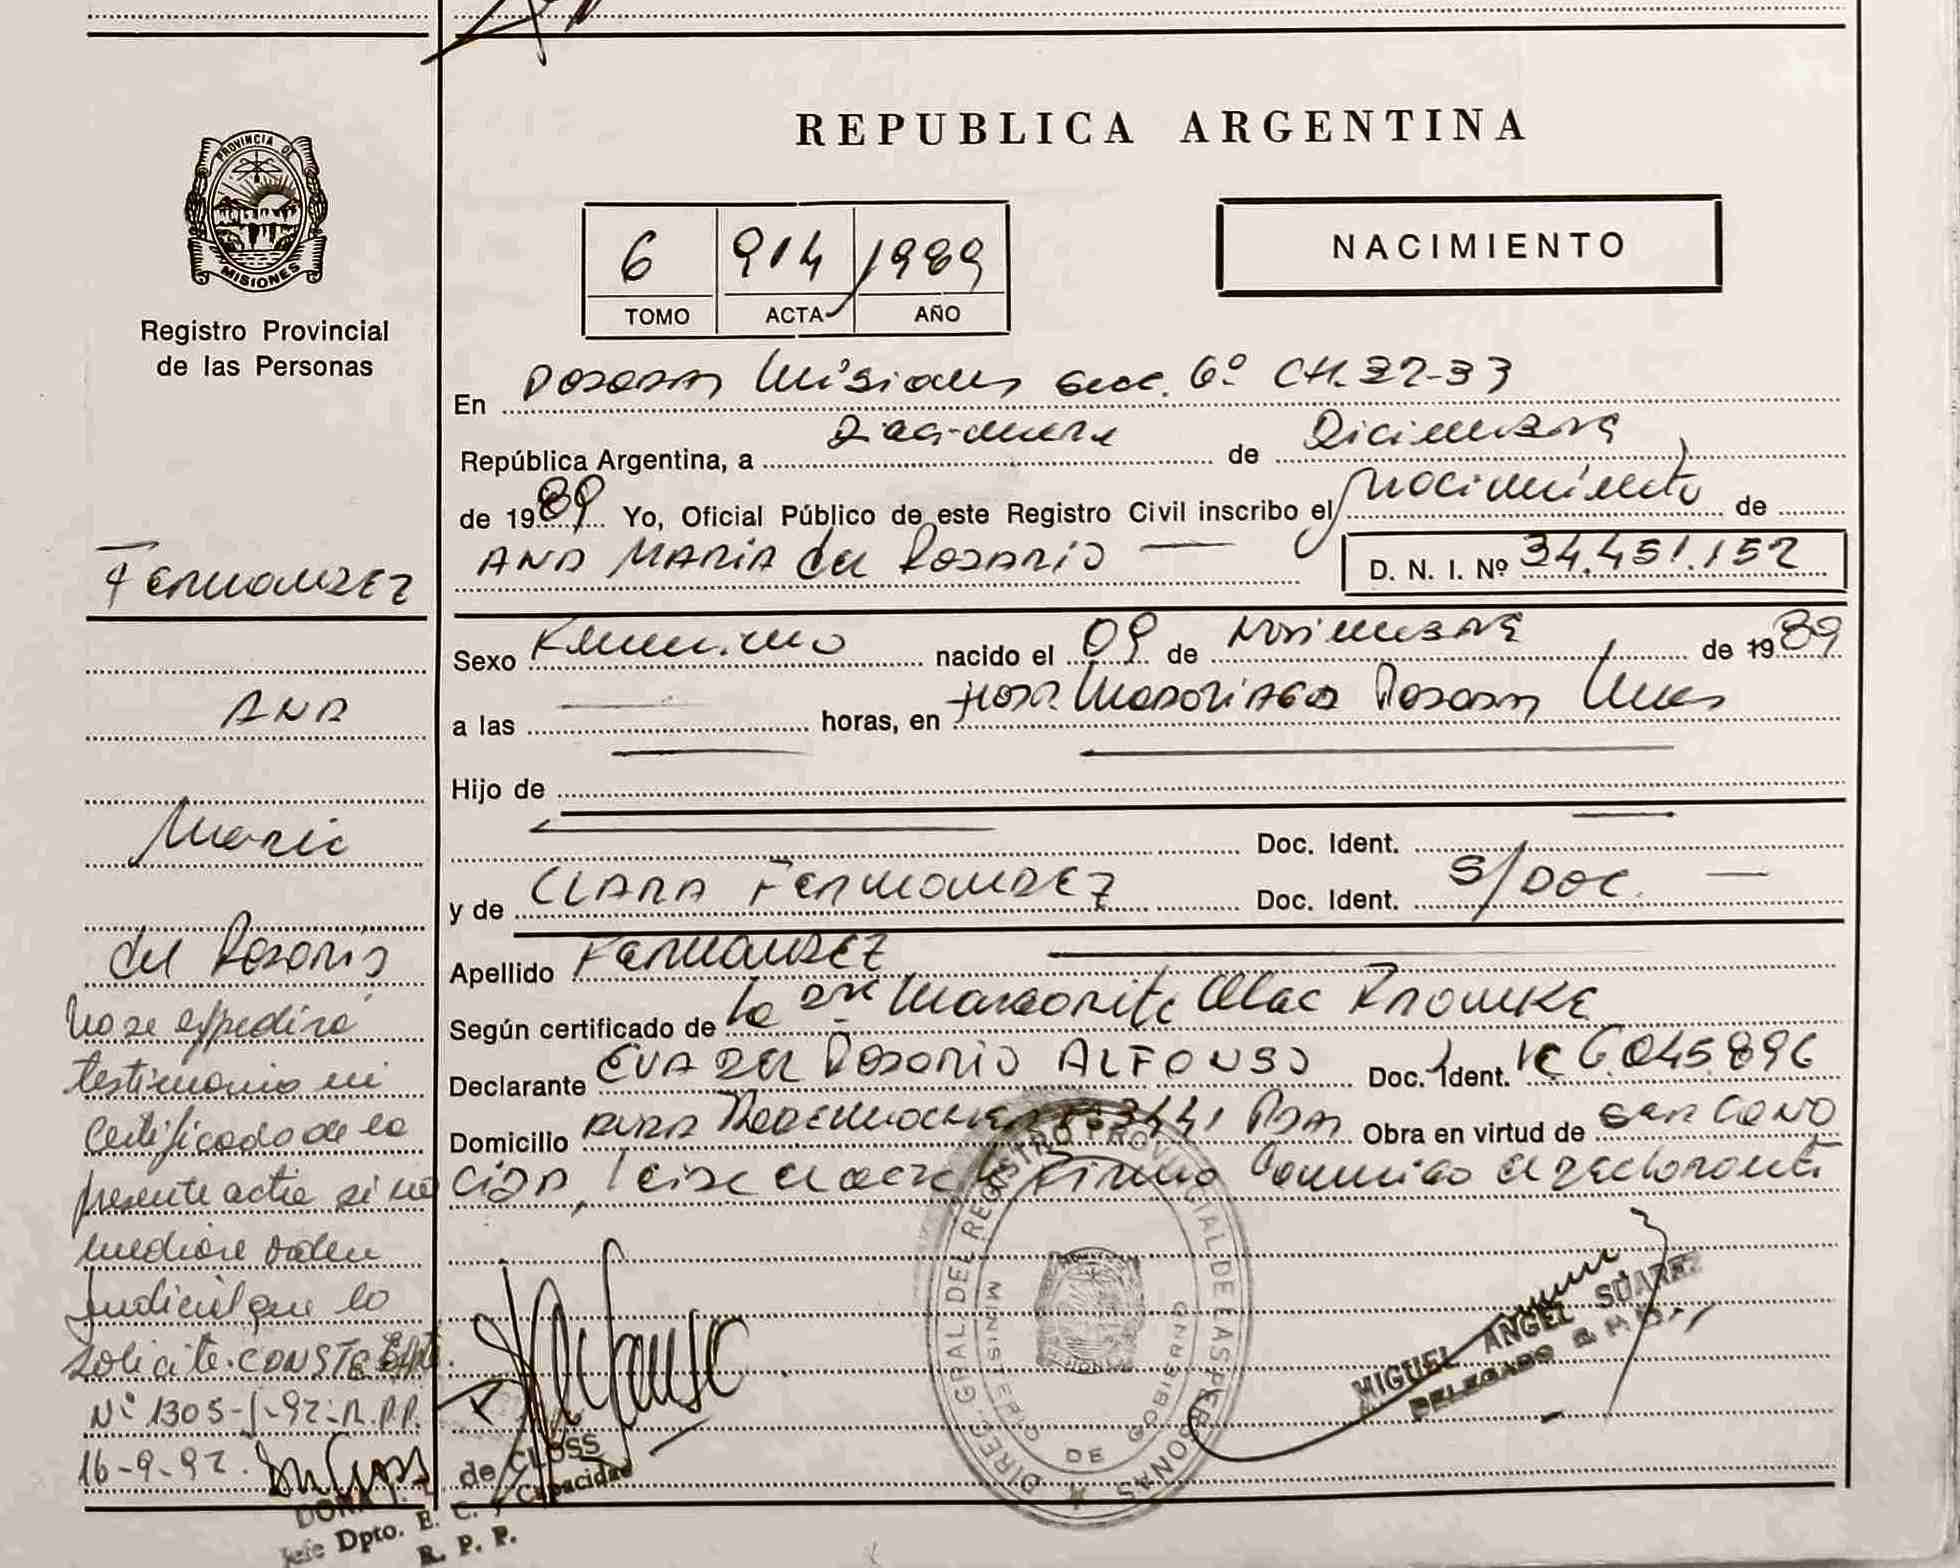 PROVINCIA DE
MISIONES
Registro Provincial
de las Personas
REPUBLICA ARGENTINA
6 914 1989
TOMO ACTA AÑO
NACIMIENTO
En Posadas Misiones Secc. 6º CH. 32-33
República Argentina, a de Diciembre
de 1989 Yo, Oficial Público de este Registro Civil inscribo el Nacimiento de
ANA MARIA del Rosario D. N. I. Nº 34.451.152
Sexo Femenino nacido el 09 de Noviembre de 1989
a las horas, en Hosp Madariaga Posadas Mnes
Hijo de
Doc. Ident.
y de CLARA FERNANDEZ Doc. Ident. S/DOC.
Apellido FERNANDEZ
Según certificado de la Dra Margarita
Declarante EVA DEL Rosario ALFONSO Doc. Ident. LC 6.045.896
Domicilio Obra en virtud de SER CONO
CIDA, Leida el acta la Firma Conmigo el declarante
Fernandez
ANA
Maria
del Rosario
No se expedirá
testimonio ni
Certificado de la
presente acta si no
mediare orden
Judicial que lo
solicite. CONSTE Expte.
Nº 1305-J-92-R.P.P.
16-9-92.
de CLOSS
Jefe Dpto. E. C. y Capacidad
R. P. P.
DIREC. GRAL. DEL REGISTRO PROVINCIAL DE LAS PERSONAS
MINISTERIO DE GOBIERNO
MIGUEL ANGEL SUAREZ
DELEGADO